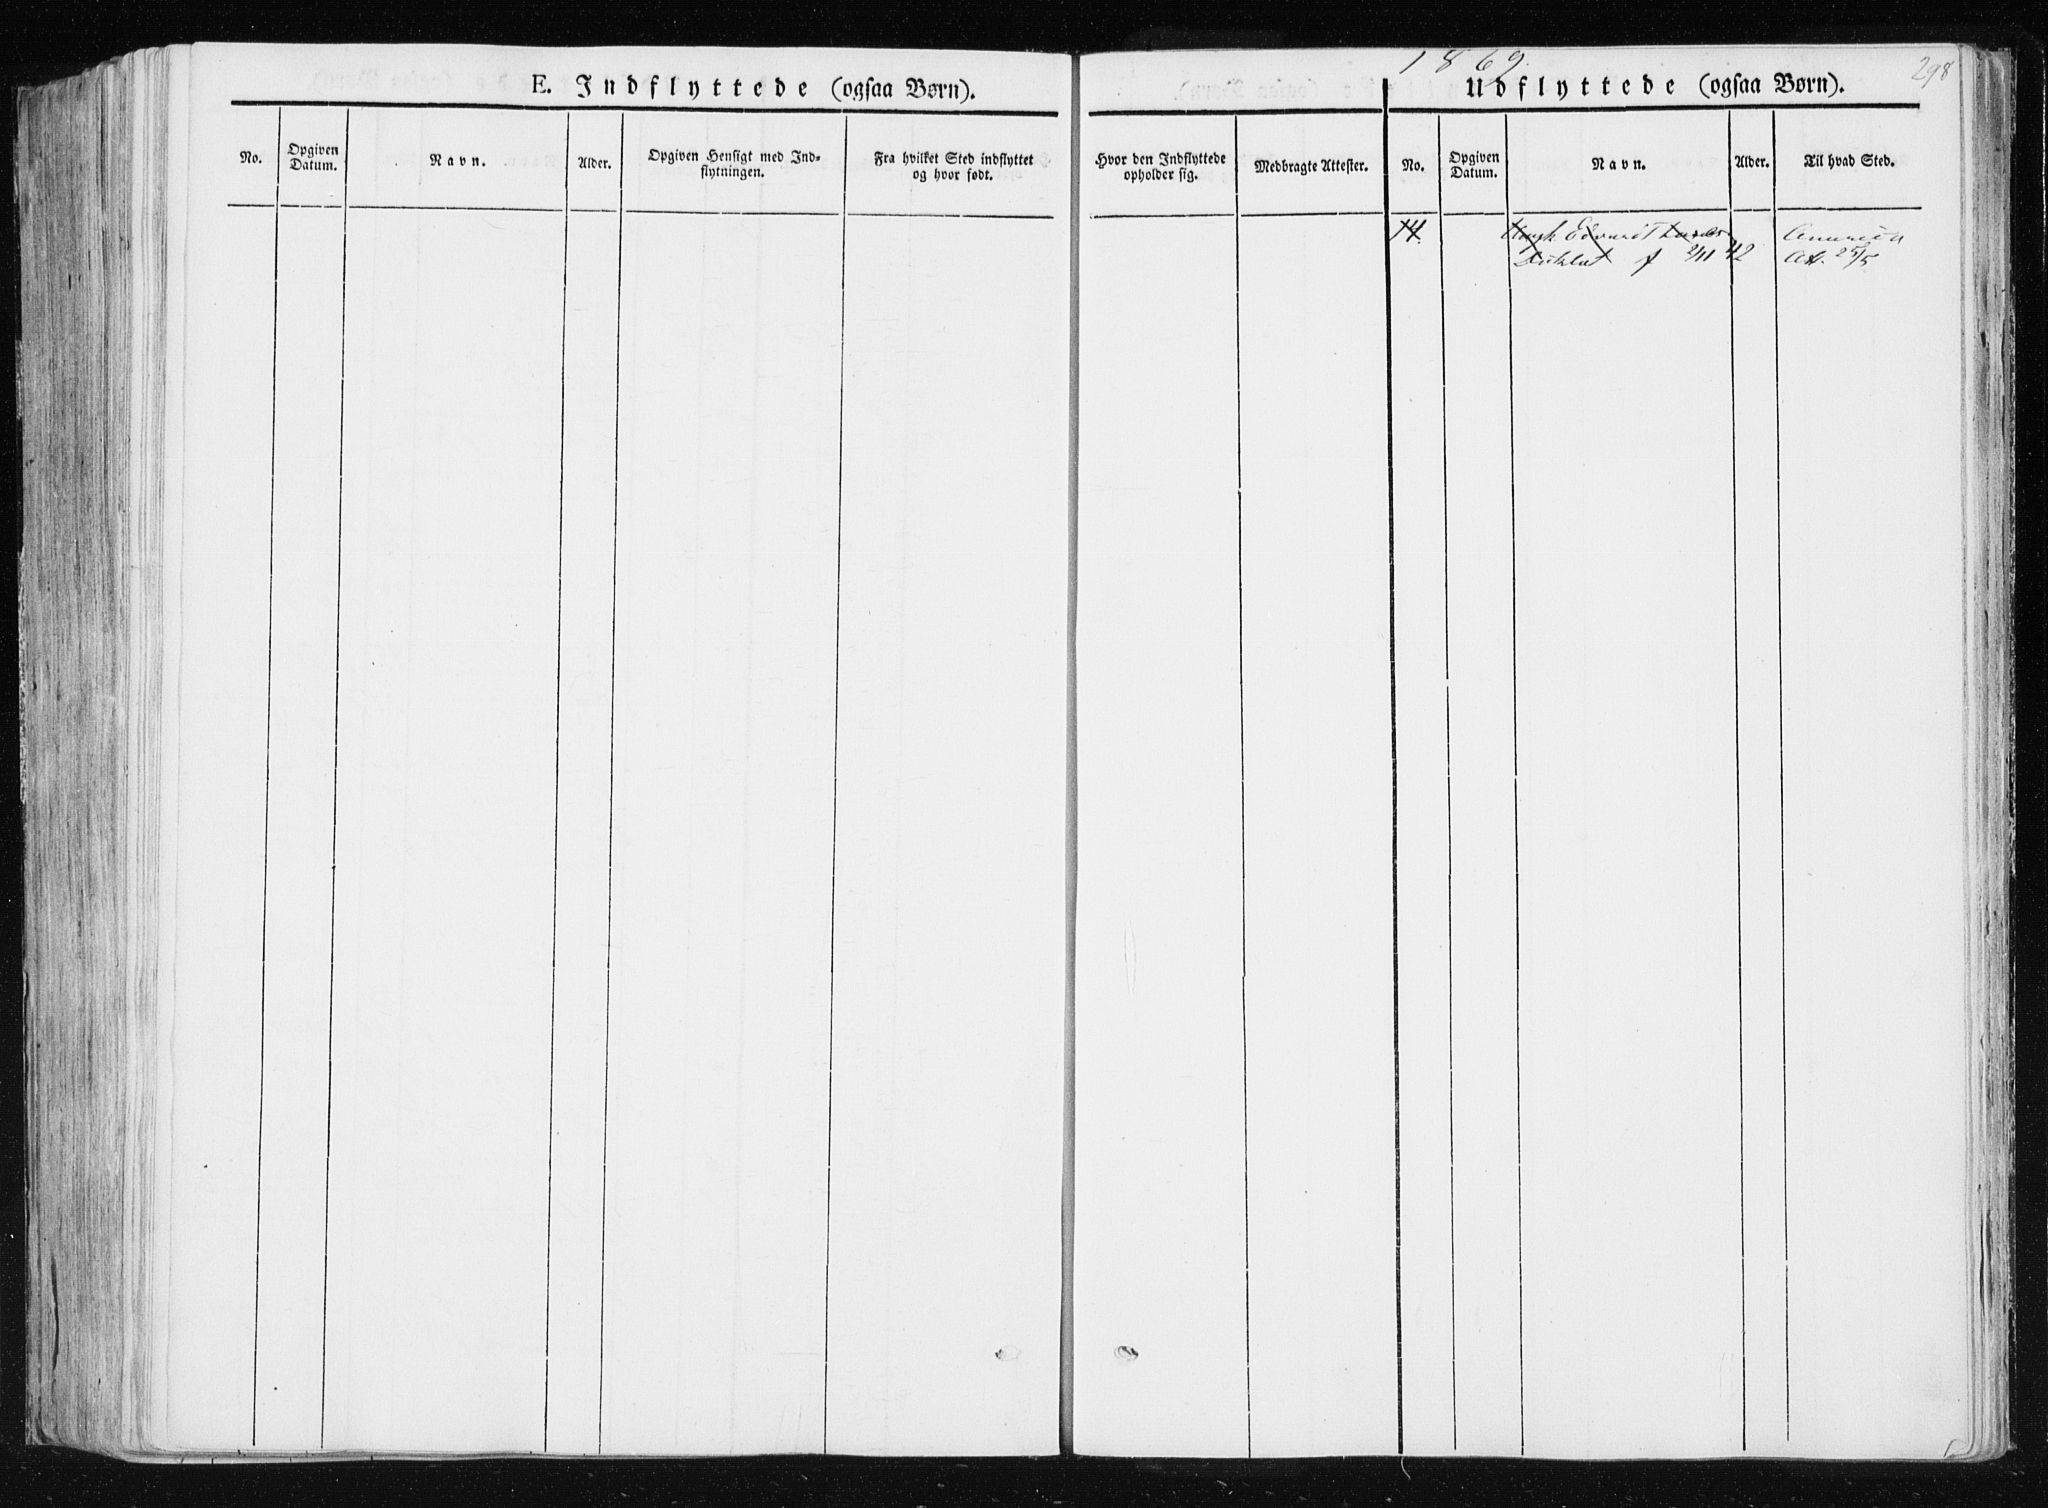 E. Indflyttede (ogsaa Børn).
No.
Opgiven
Datum.
Navn.
Alder.
Opgiven Hensigt med Ind-
flytningen.
Fra hvilket Sted indflyttet
og hvor født.
1869.
298
Udflyttede (ogsaa Børn).
Hvor den Indflyttede
opholder sig.
Medbragte Attester.
No.
Opgiven
Datum.
Navn.
Alder.
Til hvad Sted.
14. Edvard America
f 2/11 42 Att. 25/5